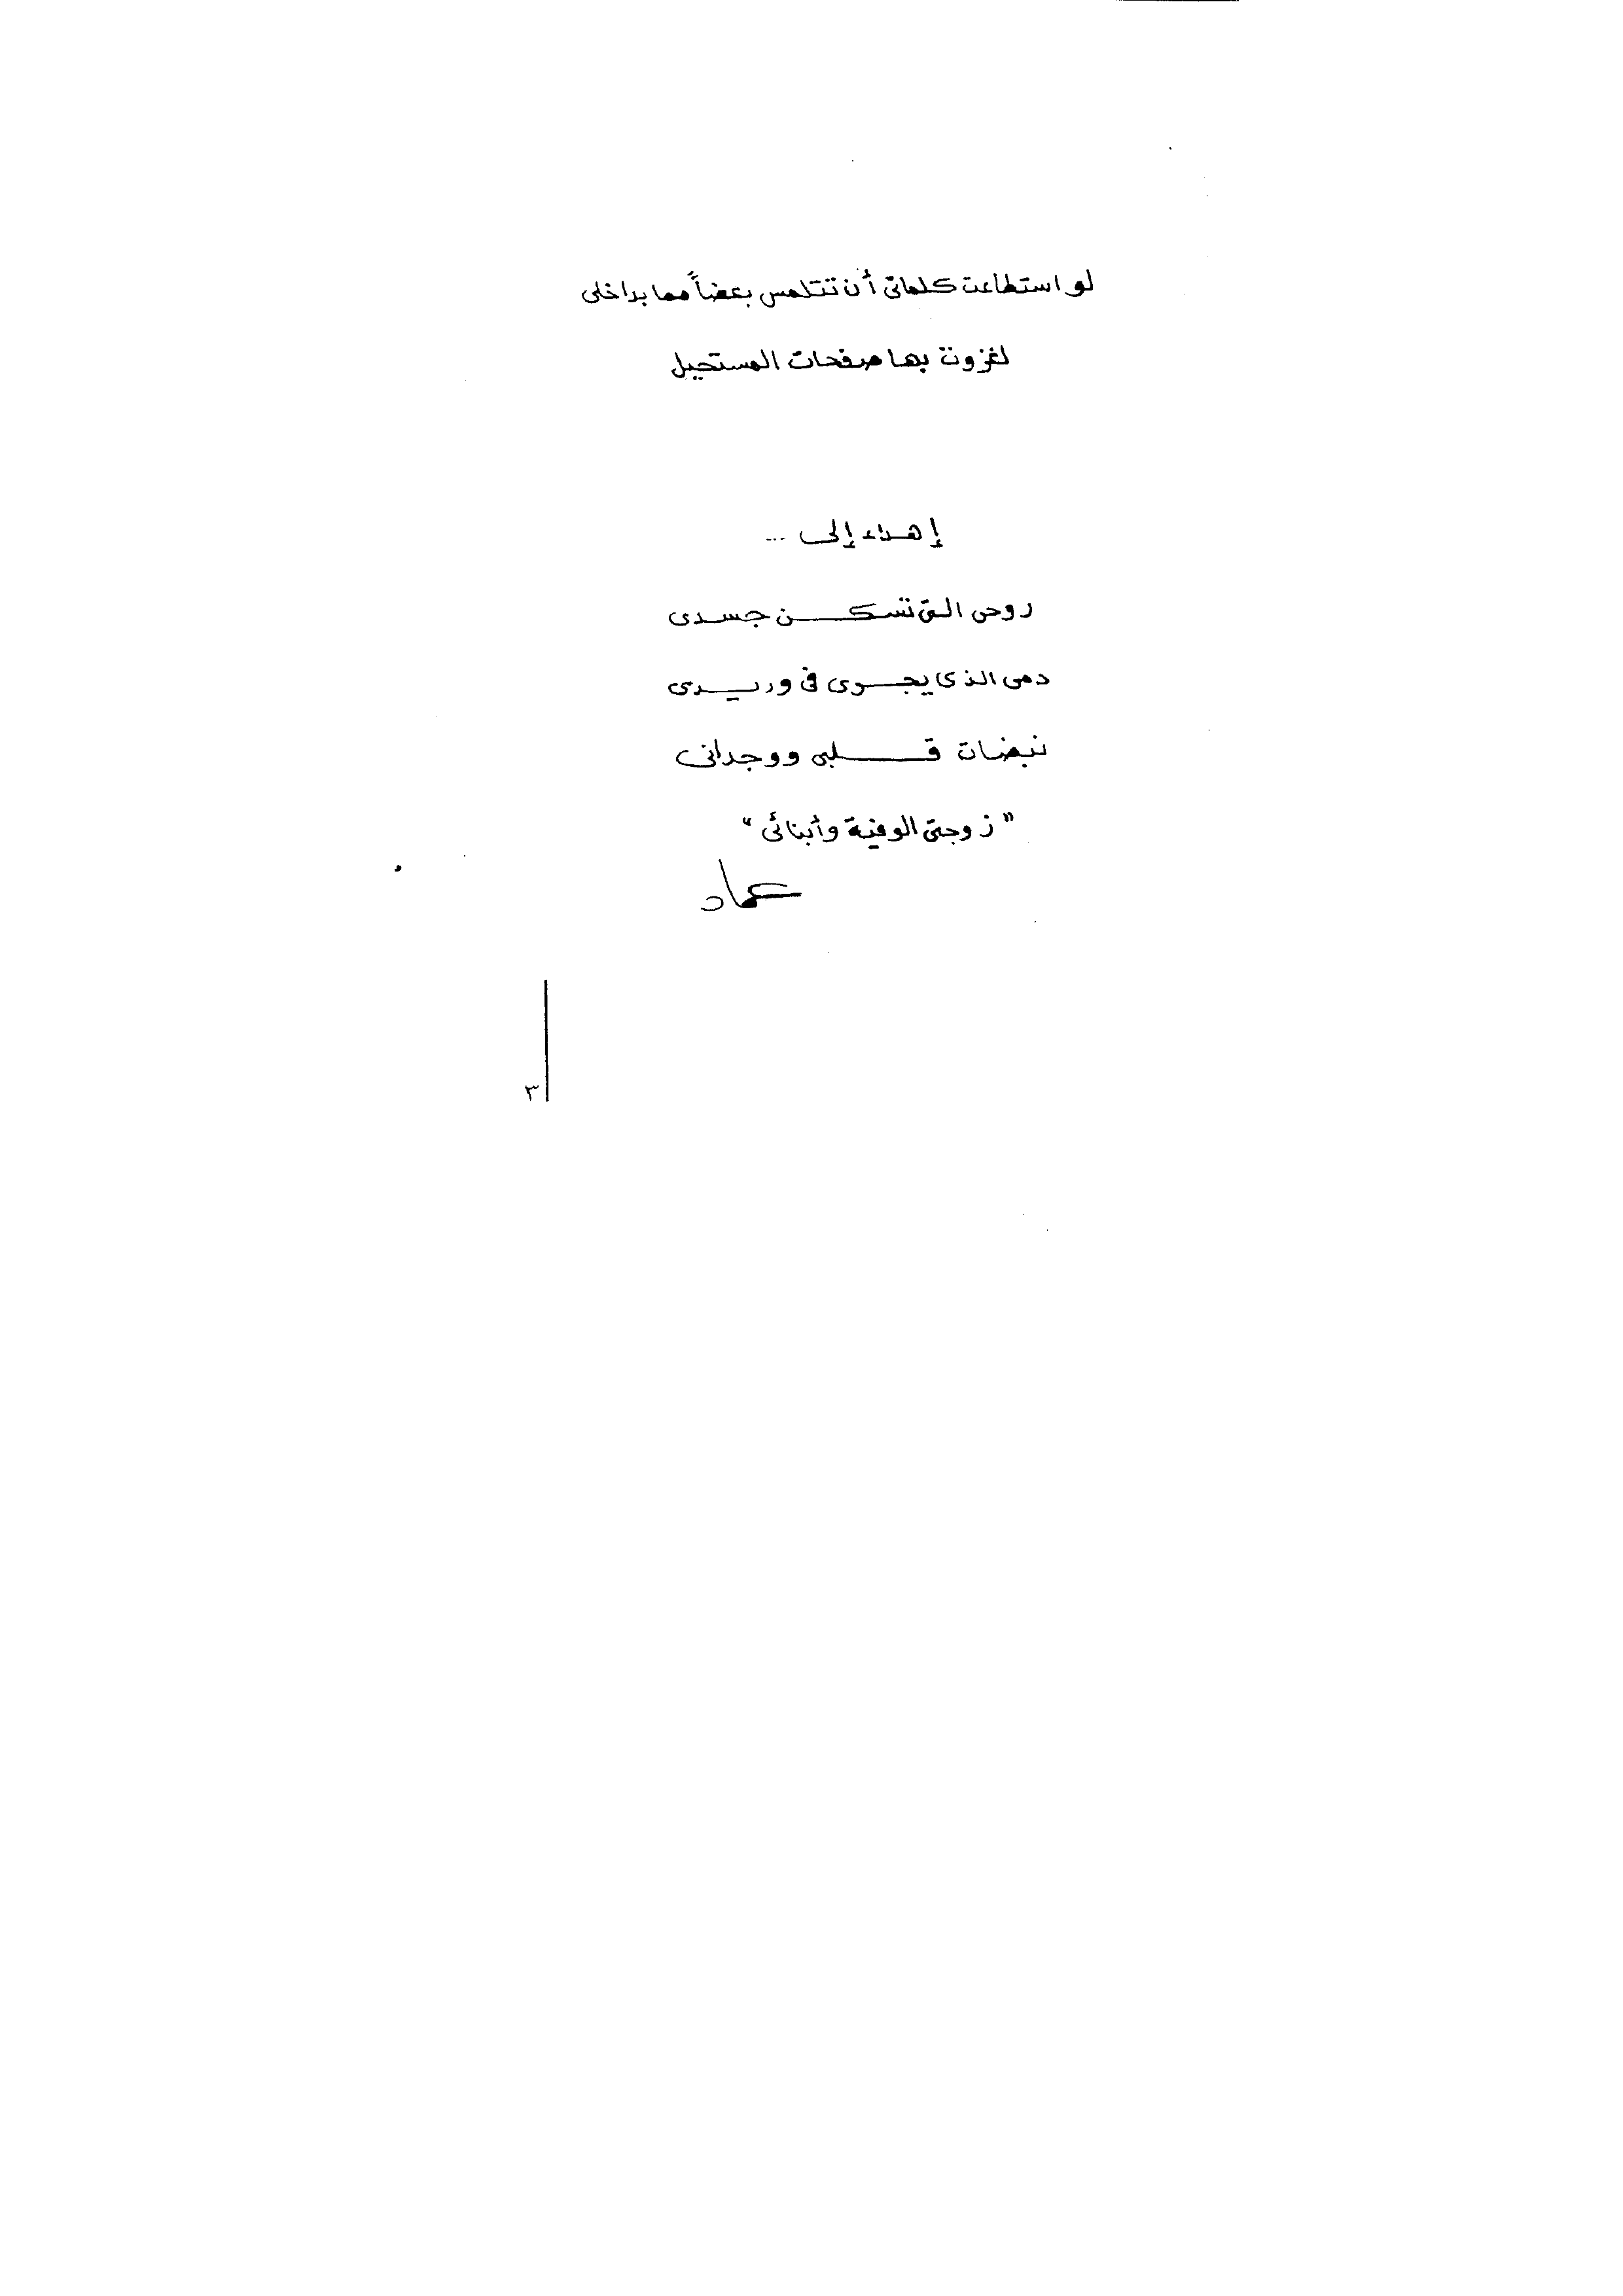 لو استطاعت كلماتى أن تتلمس بعضاً مما بداخلى
لغزوت بها صفحات المستحيل
إهداء إلى ...
روحى التى تسكن جسدى
دمى الذى يجرى فى وريدى
نبضات قلبى ووجدانى
"زوجتى الوفية وأبنائى"
عماد
٣